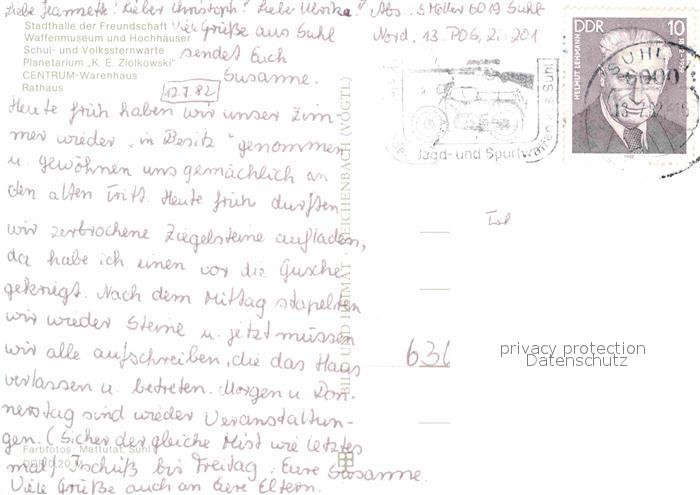 Liebe Jeannette! Lieber Christoph! Liebe Ulrike!
Abs. S. Möller 6019 Suhl
Nord. 13. POS, Zi: 201
Viele Grüße aus Suhl
sendet Euch
Susanne.
Stadthalle der Freundschaft
Waffenmuseum und Hochhäuser
Schul- und Volkssternwarte
Planetarium „K. E. Ziolkowski"
CENTRUM-Warenhaus
Rathaus
12.7.82
Heute früh haben wir unser Zim-
mer wieder „in Besitz" genommen
u. gewöhnen uns gemächlich an
den alten Tritt. Heute früh durften
wir zerbrochene Ziegelsteine aufladen,
da habe ich einen vor die Gusche
gekriegt. Nach dem Mittag stapelten
wir wieder Steine u. jetzt müssen
wir alle aufschreiben, die das Haus
verlassen u. betreten. Morgen u. Don-
nerstag sind wieder Veranstaltun-
gen. (Sicher der gleiche Mist wie letztes
mal) Tschüß bis Freitag, Eure Susanne.
Viele Grüße auch an Eure Eltern.
Farbfotos: Mattutat, Suhl
DDR 0,20 M
BILD UND HEIMAT · REICHENBACH (VOGTL)
Jagd- und Sportwaffen aus Suhl
DDR 10
HELMUT LEHMANN
1982
SUHL
6000
636
privacy protection
Datenschutz